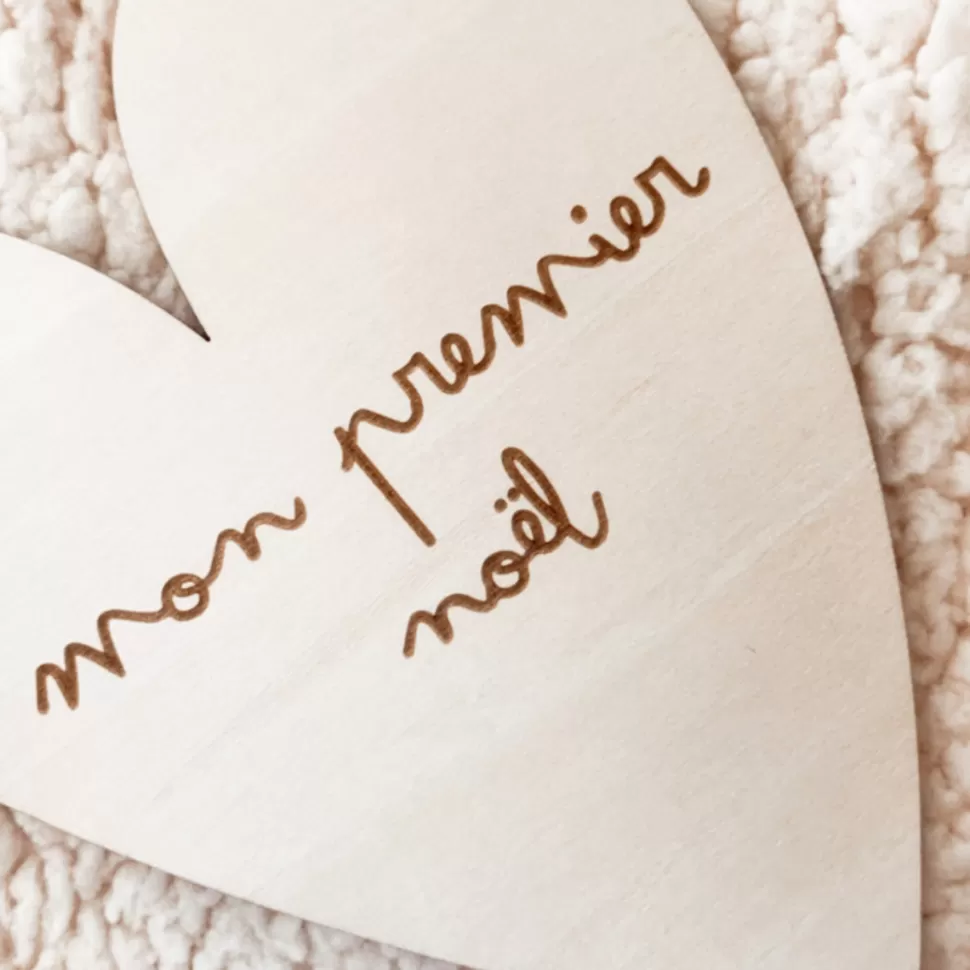 mon premier
noël